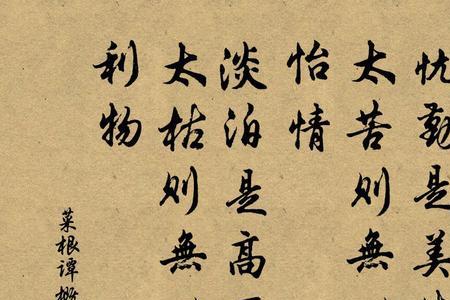 忧勤是美
太苦则無
怡情
淡泊是高
太枯则無
利物
菜根谭概